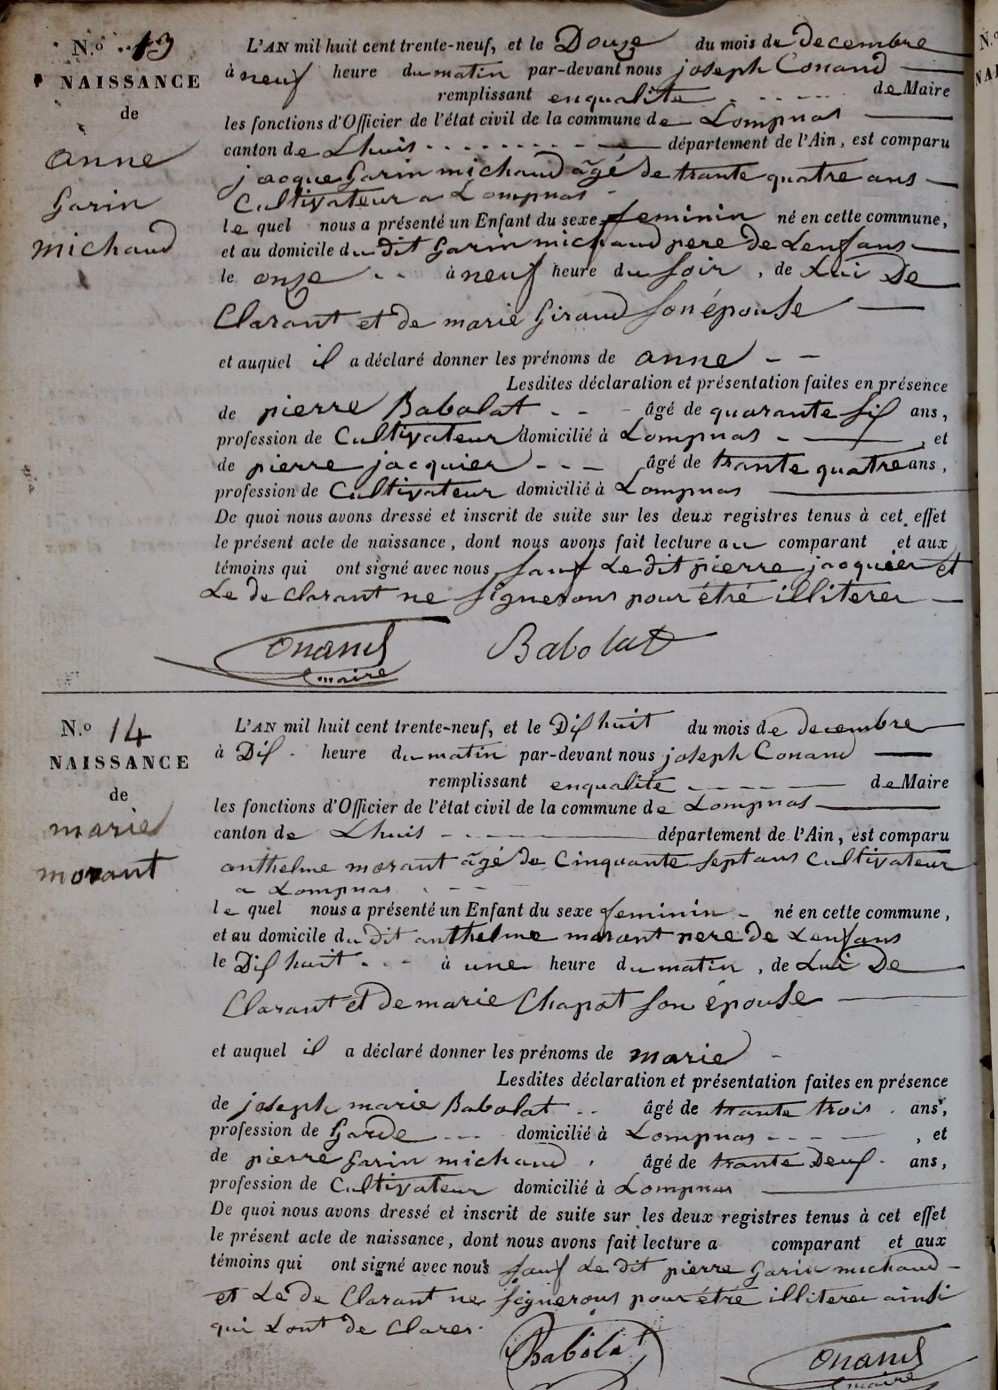 N.o 13
NAISSANCE
de
anne
Garin
michaud
L'AN mil huit cent trente-neuf, et le Douze du mois de decembre
à neuf heure du matin par-devant nous joseph Conand
remplissant enqualité de Maire
les fonctions d'Officier de l'état civil de la commune de Lompnas
canton de Lhuis département de l'Ain, est comparu
jacque Garin michaud âgé de trante quatre ans
Cultivateur a Lompnas
le quel nous a présenté un Enfant du sexe feminin né en cette commune,
et au domicile du dit Garin michaud pere de Lenfans
le onze à neuf heure du soir, de Lui De
Clarant et de marie Giraud son épouse
et auquel il a déclaré donner les prénoms de anne
Lesdites déclaration et présentation faites en présence
de pierre Babolat âgé de quarante sis ans,
profession de Cultivateur domicilié à Lompnas, et
de pierre jacquier âgé de trante quatre ans,
profession de Cultivateur domicilié à Lompnas
De quoi nous avons dressé et inscrit de suite sur les deux registres tenus à cet effet
le présent acte de naissance, dont nous avons fait lecture au comparant et aux
témoins qui ont signé avec nous sauf Le dit pierre jacquier et
Le de Clarant ne signerons pour être illiterer
Conand maire
Babolat
N.o 14
NAISSANCE
de
marie
morant
L'AN mil huit cent trente-neuf, et le Dis huit du mois de decembre
à Dis heure du matin par-devant nous joseph Conand
remplissant enqualité de Maire
les fonctions d'Officier de l'état civil de la commune de Lompnas
canton de Lhuis département de l'Ain, est comparu
anthelme morant âgé de Cinquante sept ans Cultivateur
a Lompnas
le quel nous a présenté un Enfant du sexe feminin né en cette commune,
et au domicile du dit anthelme morant pere de Lenfans
le Dis huit à une heure du matin, de Lui De
Clarant et de marie Chapot son épouse
et auquel il a déclaré donner les prénoms de marie
Lesdites déclaration et présentation faites en présence
de joseph marie Babolat âgé de trante trois ans,
profession de Garde domicilié à Lompnas, et
de pierre Garin michaud, âgé de trante Deus ans,
profession de Cultivateur domicilié à Lompnas
De quoi nous avons dressé et inscrit de suite sur les deux registres tenus à cet effet
le présent acte de naissance, dont nous avons fait lecture a comparant et aux
témoins qui ont signé avec nous sauf Le dit pierre Garin michaud
et Le de Clarant ne signerons pour être illiterer ainsi
qui Lont de Clarer.
Babolat
Conand
maire